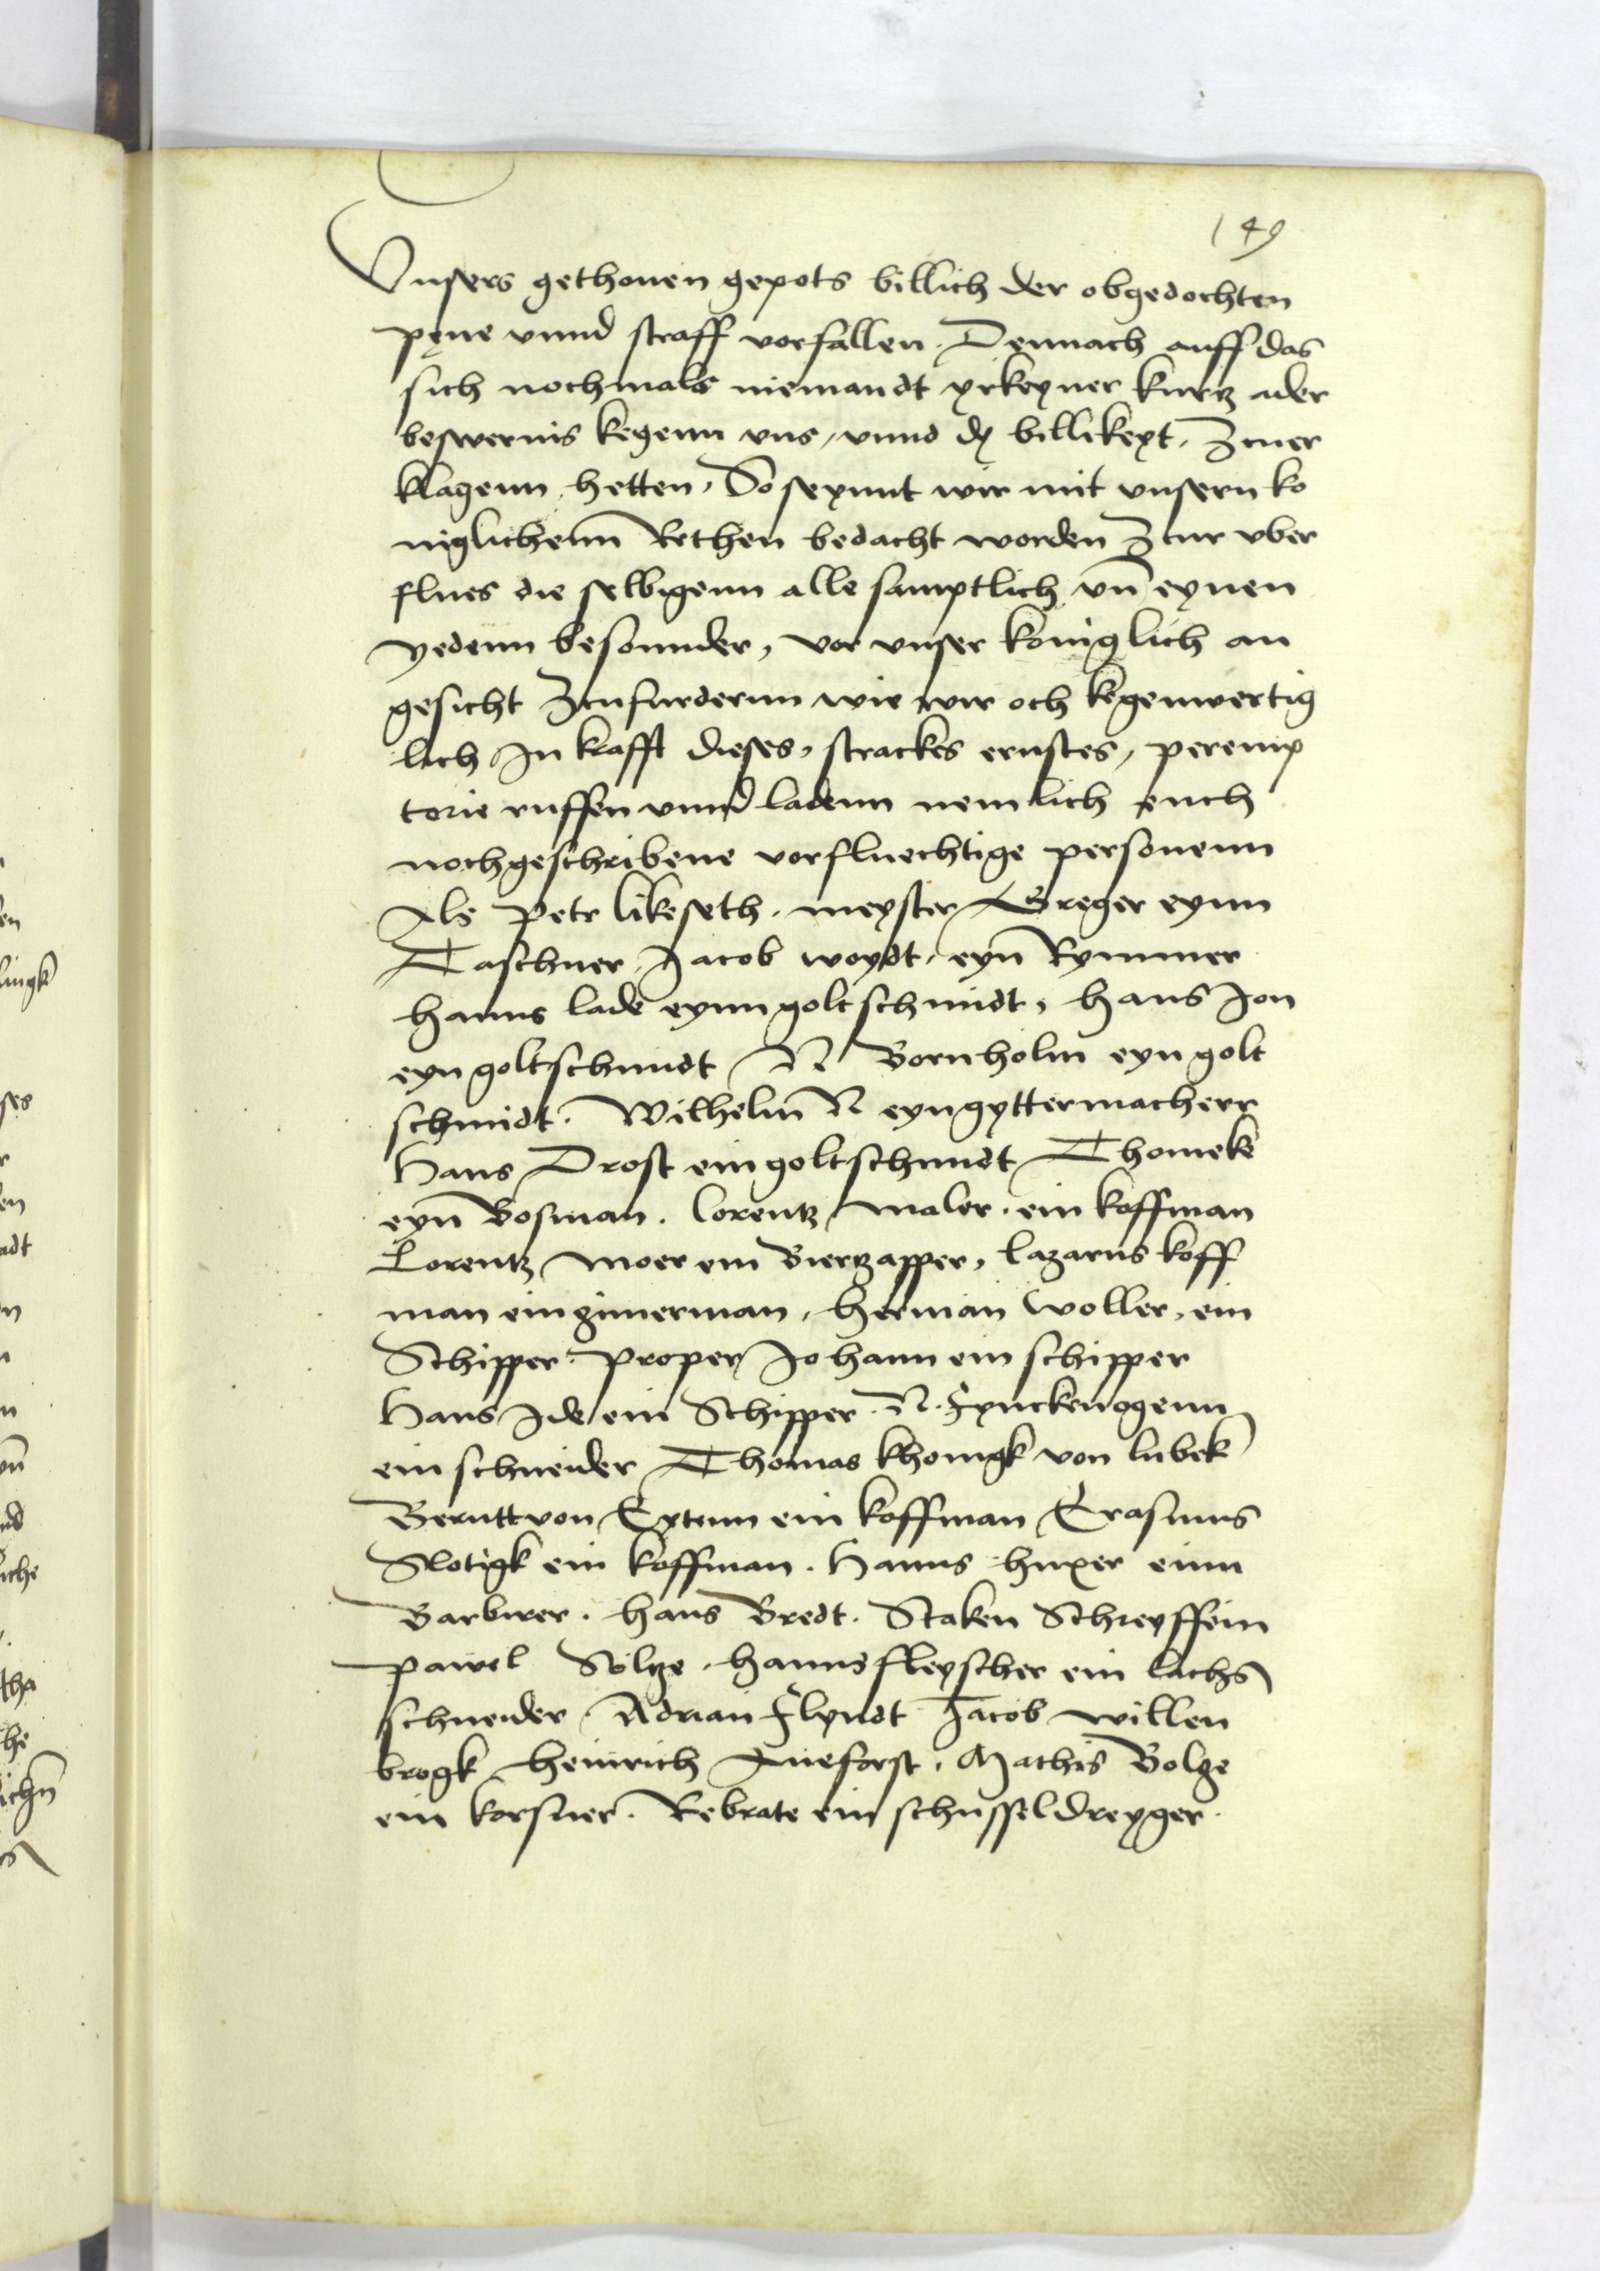 149
Vnsers gethonen gepots billich der obgedochten
pene vnnd straff vorfallen. Dennach auff das
sich nochmals niemandt yrkeyner kurtz ader
beswernis kegenn vns, vnnd dy billikeyt, Zcuer
klagenn hetten, So seynnt wir mit vnsern ko
niglichenn Rethen bedacht worden Zcur vber
flues die selbigenn alle samptlich vn̄ eynen
yedenn besonnder, vor vnser koniglich an
gesicht Zcufurdernn wie wir och kegenwertig
lich In krafft dieses, strackes ernstes, peremp
torie ruffen vnnd ladenn nemlich euch
nochgeschribene vorfluechtige personenn
Als Petr likeseth. meyster Greger eynn
Taschner. Jacob woydt, eyn̄ Rymmer
Hanns lade eynn goltschmidt, Hans Jon
eyn goltschmidt N Bornholm eyn golt
schmidt. Wilhelm N eyn gyttermacherr
Hans Drost ein goltschmidt Thomeke
eyn̄ Bosman. Lorentz maler. ein koffman
Lorentz moer ein Biertzapper, Lazarus koff
man ein zimerman, Herman woller, ein
Schipper. Proper Johann ein schipper
Hans Ide ein Schipper. N. Fynckenogenn
ein schneider Thomas khonigk von lubek
Berntt von Extenn ein koffman Erasmus
Slotigk ein koffman. Hanns huxer einn
Barbirer. Hans Bredt. Staken Schreyffein
Pawel Sölge, Hanns fleyscher ein lachs
schneider. Adrian Flyndt Jacob willen
brogk Heinrich Aneforst, Mathis Bolge
ein korsner. Rebrate ein schussel dreyger.